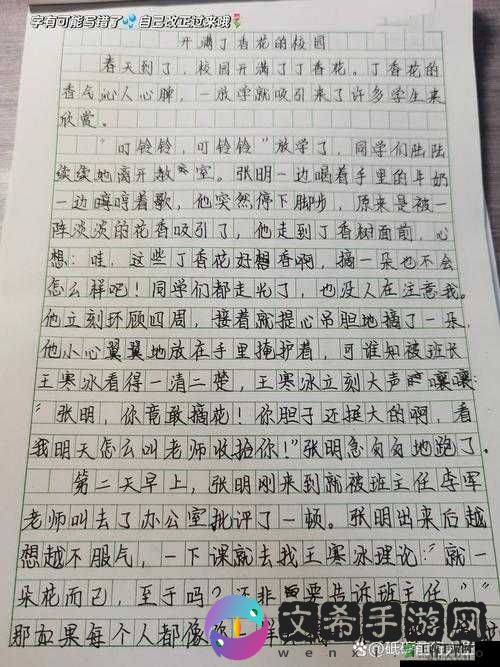 字有可能写错了💦自己改正过来哦🌷
开满丁香花的校园
春天到了，校园开满了丁香花。丁香花的
香气沁人心脾，一放学就吸引来了许多学生来
欣赏。
“叮铃铃，叮铃铃”放学了，同学们陆陆
续续地离开教室。张明一边喝着手里的牛奶
一边哼哼着歌，他突然停下脚步，原来是被一
阵淡淡的花香吸引了，他走到丁香树面前，心
想：哇，这些丁香花好想香啊，摘一朵也不会
怎么样吧！同学们都走光了，也没人在注意我。
他立刻环顾四周，接着就提心吊胆地摘了一朵，
他小心翼翼地放在手里掩护着，可谁知被班长
王寒冰看得一清二楚，王寒冰立刻大声嚷嚷：
“张明，你竟敢摘花！你胆子还挺大的啊，看
我明天怎么叫老师收拾你！”张明急匆匆地跑了。
第二天早上，张明刚来到就被班主任李军
老师叫去了办公室批评了一顿。张明出来后越
想越不服气，一下课就去找王寒冰理论：“就一
朵花而已，至于吗？还非要告诉班主任。”“
那如果每个人都像你一样
文希手游网